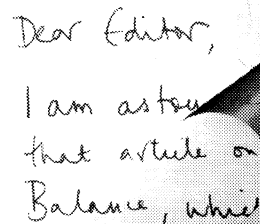 Dear Editor,
I am
that article on
Balance, which